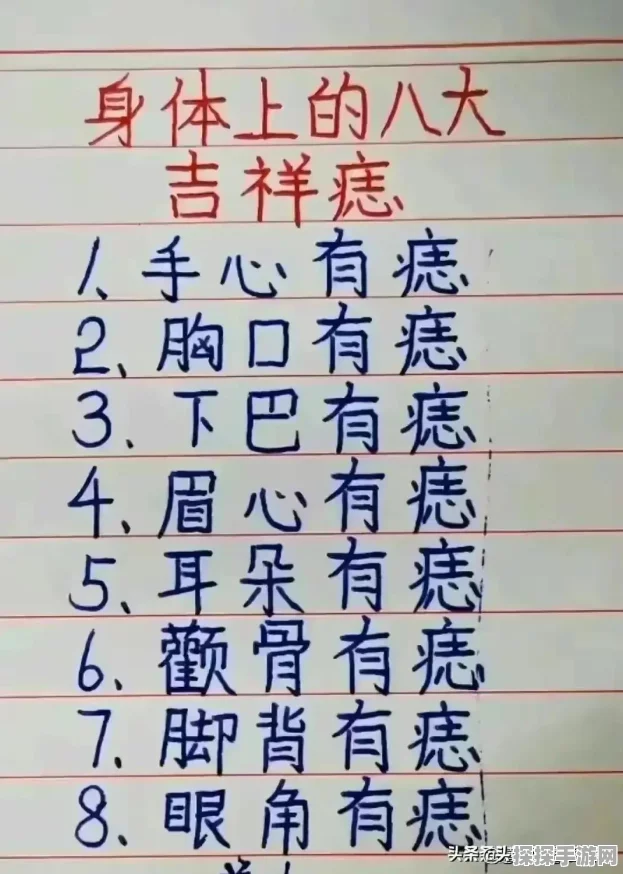 身体上的八大
吉祥痣
1、手心有痣
2、胸口有痣
3、下巴有痣
4、眉心有痣
5、耳朵有痣
6、颧骨有痣
7、脚背有痣
8、眼角有痣
头条
探探手游网